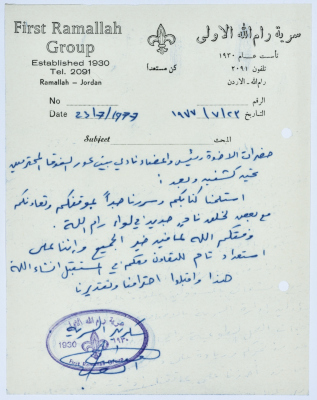 First Ramallah Group
Established 1930
Tel. 2091
Ramallah – Jordan
سرية رام الله الاولى
تأسست عام ١٩٣٠
تلفون ٢٠٩١
رام الله - الاردن
كن مستعداً
No
الرقم
Date 23/7/1977
التاريخ ١٩٧٧/٧/٢٣
Subject
حضرات الاخوة رئيس واعضاء نادي بيت عور الفوقا المحترمين
تحية كشفية وبعد :
استلمنا كتابكم وسررنا جداً بموقفكم وتعاونكم
مع بعض لخلق نادي جديد في لواء رام الله .
وفقكم الله لما فيه خير الجميع واننا على
استعداد تام للتعاون معكم في المستقبل انشاء الله
هذا واقبلوا احترامنا وتقديرنا
سرية رام الله
1930
١٩٣٠